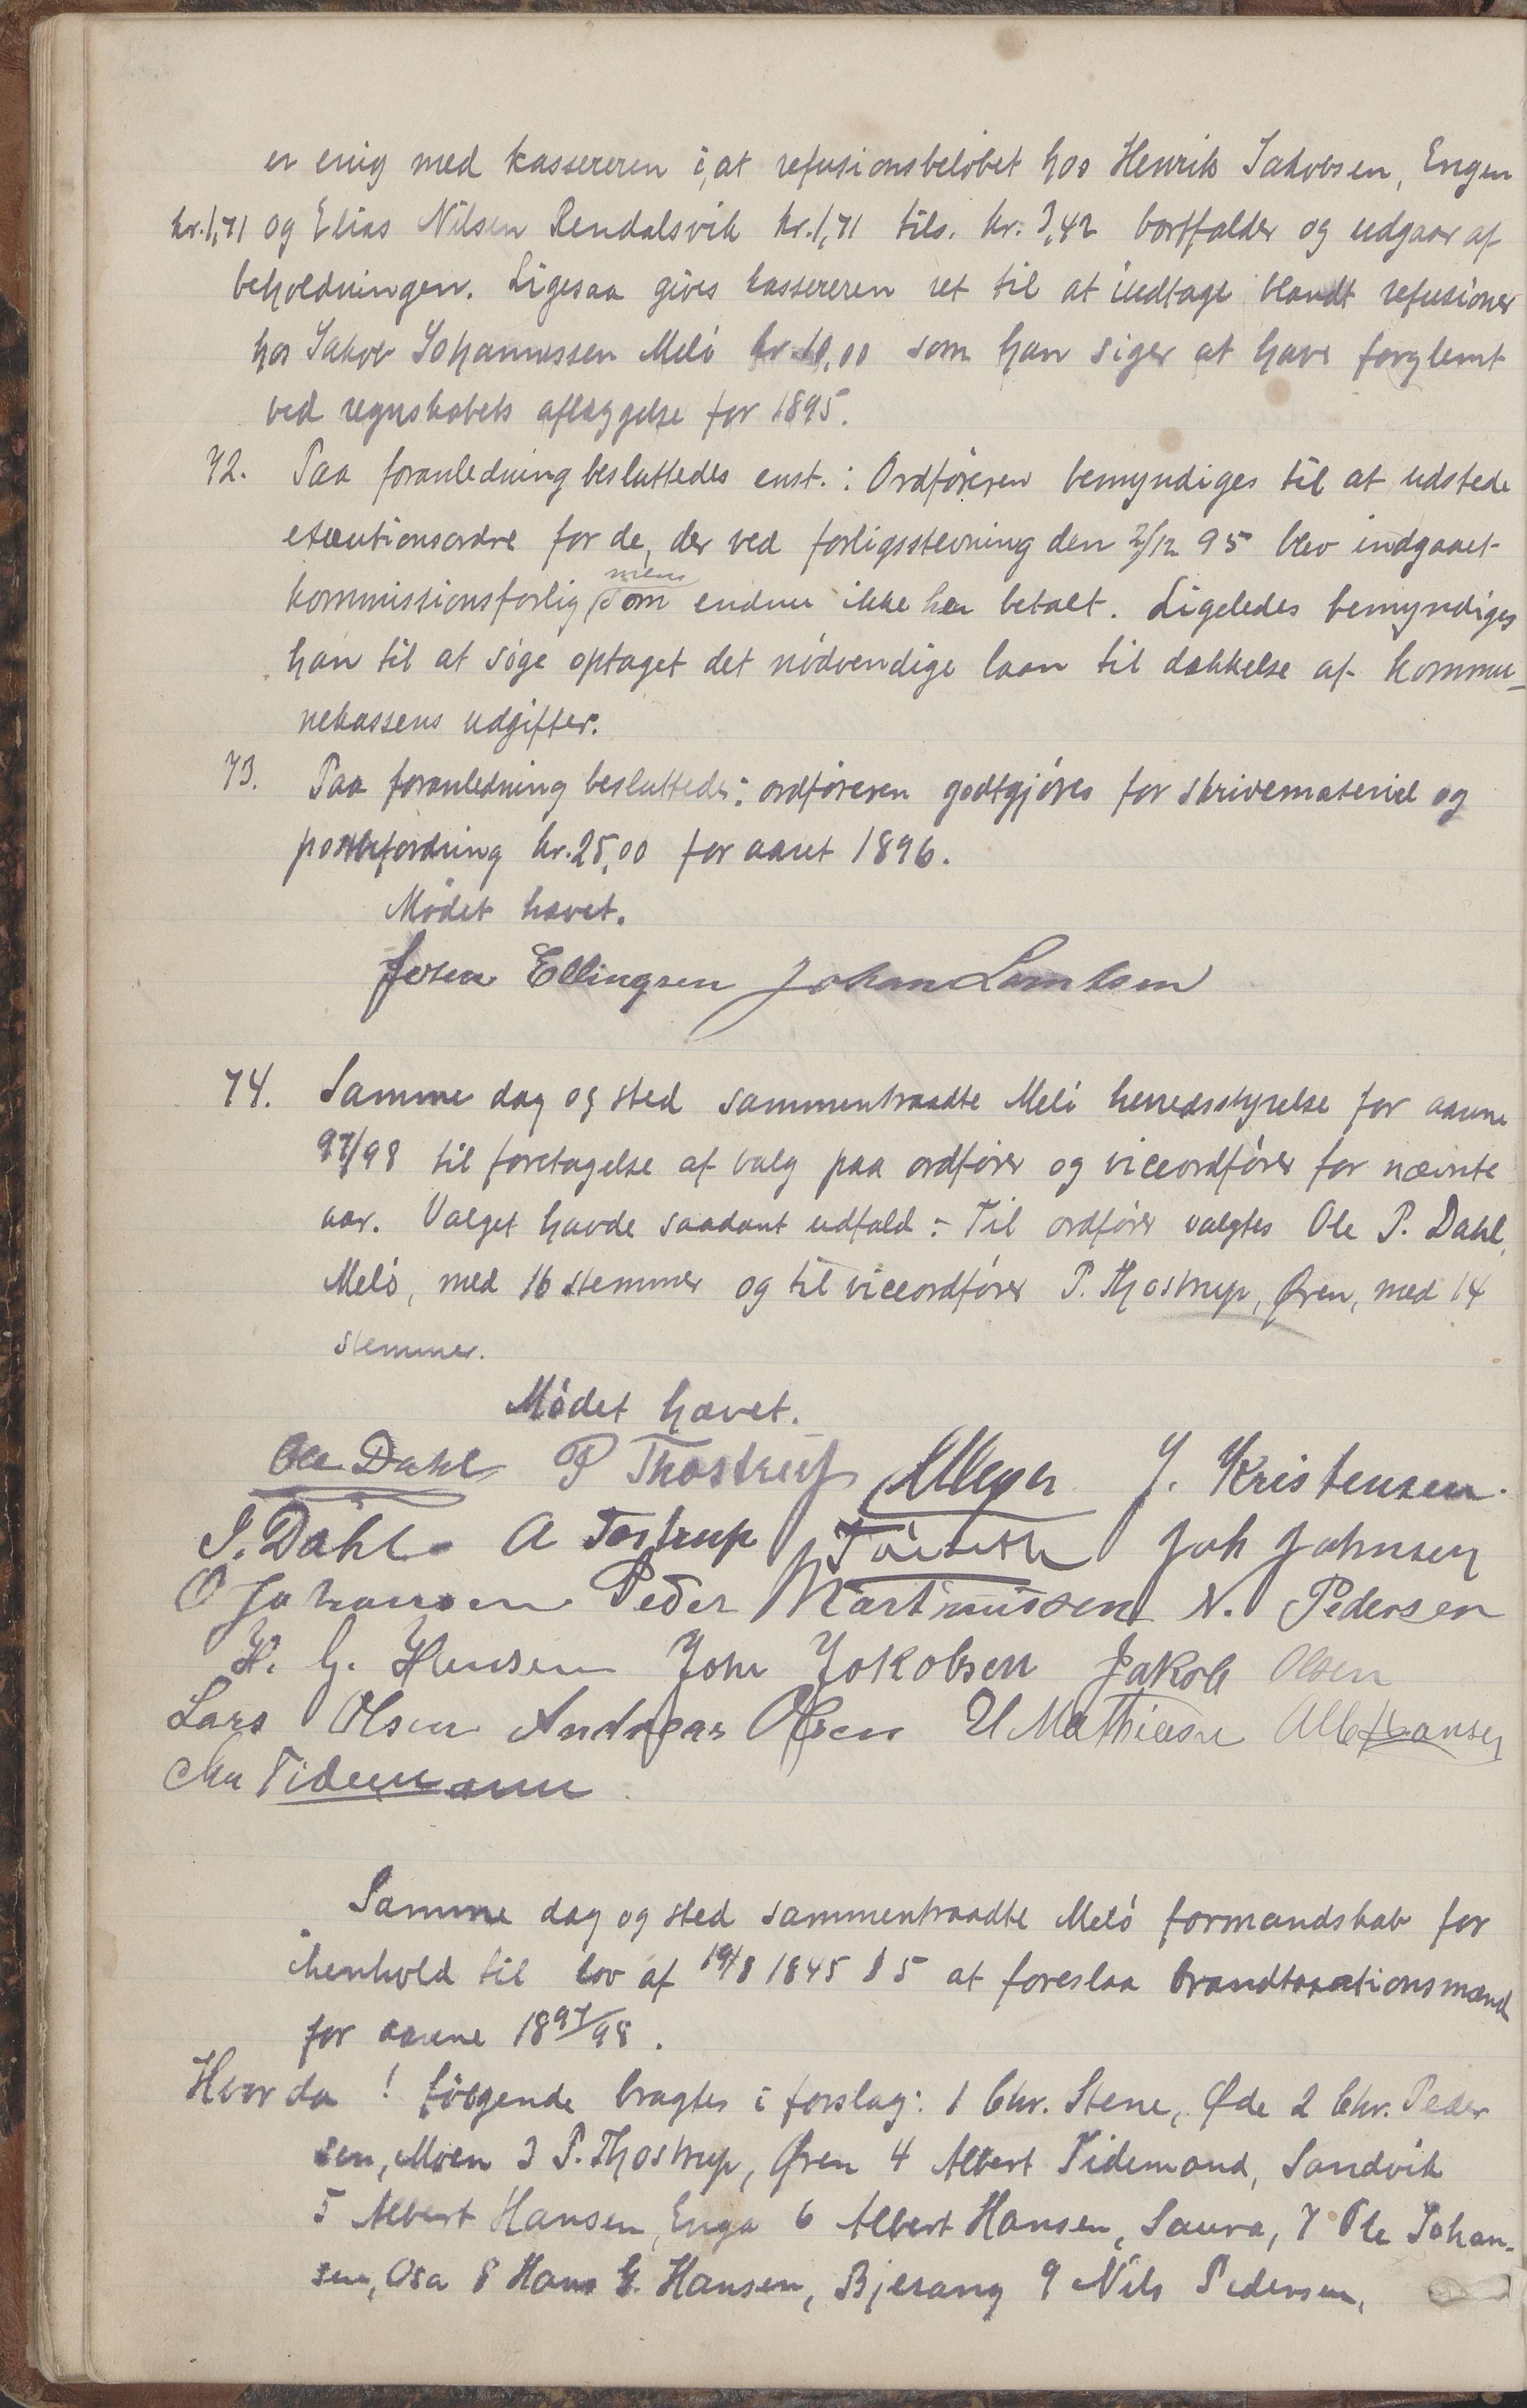 er enig med kassereren i, at refusionsbeløbet hos Henrik Jakobsen, Engen
kr. 1,71 og Elias Nilsen Rendalsvik kr. 1,71 tils. kr. 3,42 bortfalder og udgaar af
beholdningen. Ligesaa gives kassereren ret til at indtage blandt refusioner
hos Jakob Johannessen Melø kr. 10,00 som han siger at have forglemt
ved regnskabets aflæggelse for 1895.
72. Paa foranledning besluttedes enst.: Ordføreren bemyndiges til at udstede
executionsordre for de, der ved forligsstevning den 7/12 95 blev indgaaet
mens
kommissionsforlig som endnu ikke har betalt. Ligeledes bemyndiges
han til at søge optaget det nødvendige laan til dækkelse af kommu-
nekassens udgifter.
73. Paa foranledning besluttedes: ordføreren godtgjøres for skrivemateriel og
postbefordring kr. 25,00 for aaret 1896.
Mødet hævet.
Jesen Ellingsen Johan Lorntsen
74. Samme dag og sted sammentraadte Melø herredsstyrelse for aarene
97/98 til foretagelse af valg paa ordfører og viceordfører for nævnte
aar. Valget havde saadant udfald: Til ordfører valgtes Ole P. Dahl,
Melø, med 16 stemmer og til viceordfører P. Thostrup, Øren, med 14
stemmer.
Mødet hævet.
Ole Dahl P Thostrup Meyer J. Kristensen.
J. Dahl A Tostrup Joh Johnsen
O Johansen Peder Martinussen N. Pedersen
H. G. Hansen John Jakobsen Jakob Olsen
Lars Olsen Andreas Olsen U Mathiesen Alb Hansen
Tidemann
Samme dag og sted sammentraadte Melø formandskab for
ihenhold til lov af 19/8 1845 § 5 at foreslaa brandtaxationsmænd
for aarene 1897/98.
Hvor da ! følgende bragtes i forslag: 1 Chr. Stene, Øde 2 Chr. Peder
sen, Moen 3 P. Thostrup, Øren 4 Albert Tidemand, Sandvik
5 Albert Hansen, Enga 6 Albert Hansen, Saura, 7 Ole Johan-
sen, Osa 8 Hans G. Hansen, Bjerang 9 Nils Pedersen,